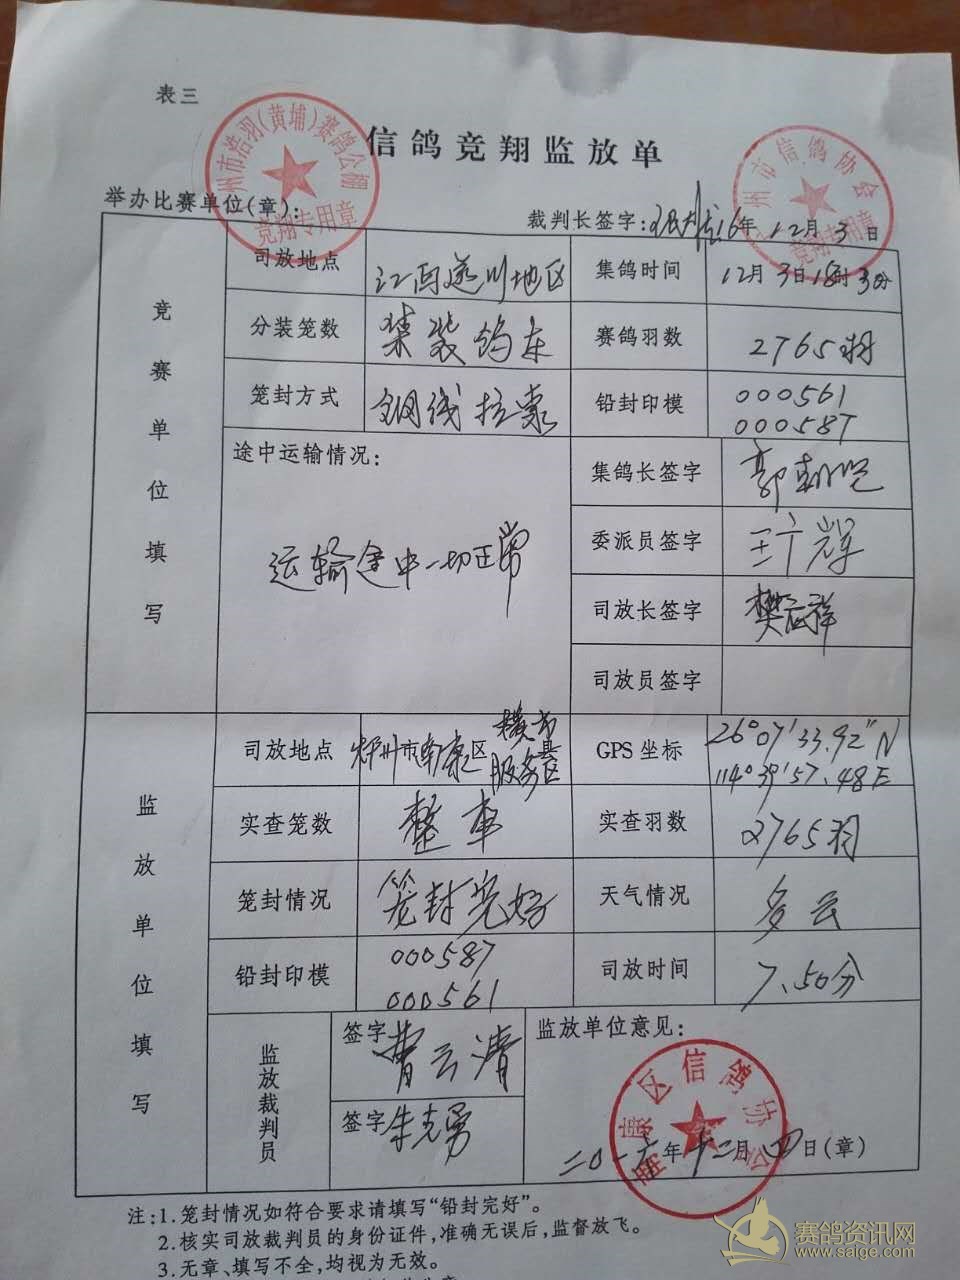 表三
州市浩羽(黄埔)赛鸽公棚
竞翔专用章
州市信鸽协会
竞翔专用章
信鸽竞翔监放单
举办比赛单位(章):
裁判长签字: 16年12月3日
竞赛单位填写
司放地点 江西遂川地区 集鸽时间 12月3日18时3分
分装笼数 集装鸽车 赛鸽羽数 2765羽
笼封方式 钢线拉索 铅封印模 000561
000587
途中运输情况:
运输途中一切正常
集鸽长签字
委派员签字
司放长签字 樊云祥
司放员签字
监放单位填写
司放地点 市南康区横市服务区 GPS坐标 26°07′33.92″N
114°39′57.48E
实查笼数 整车 实查羽数 2765羽
笼封情况 笼封完好 天气情况 多云
铅封印模 000587
000561
司放时间 7.50分
监放裁判员
签字 曹云清
签字 朱克勇
监放单位意见:
康区信鸽协会
二〇一六年十二月四日(章)
注:1.笼封情况如符合要求请填写“铅封完好”。
2.核实司放裁判员的身份证件,准确无误后,监督放飞。
3.无章、填写不全,均视为无效。
赛鸽资讯网
www.saige.com